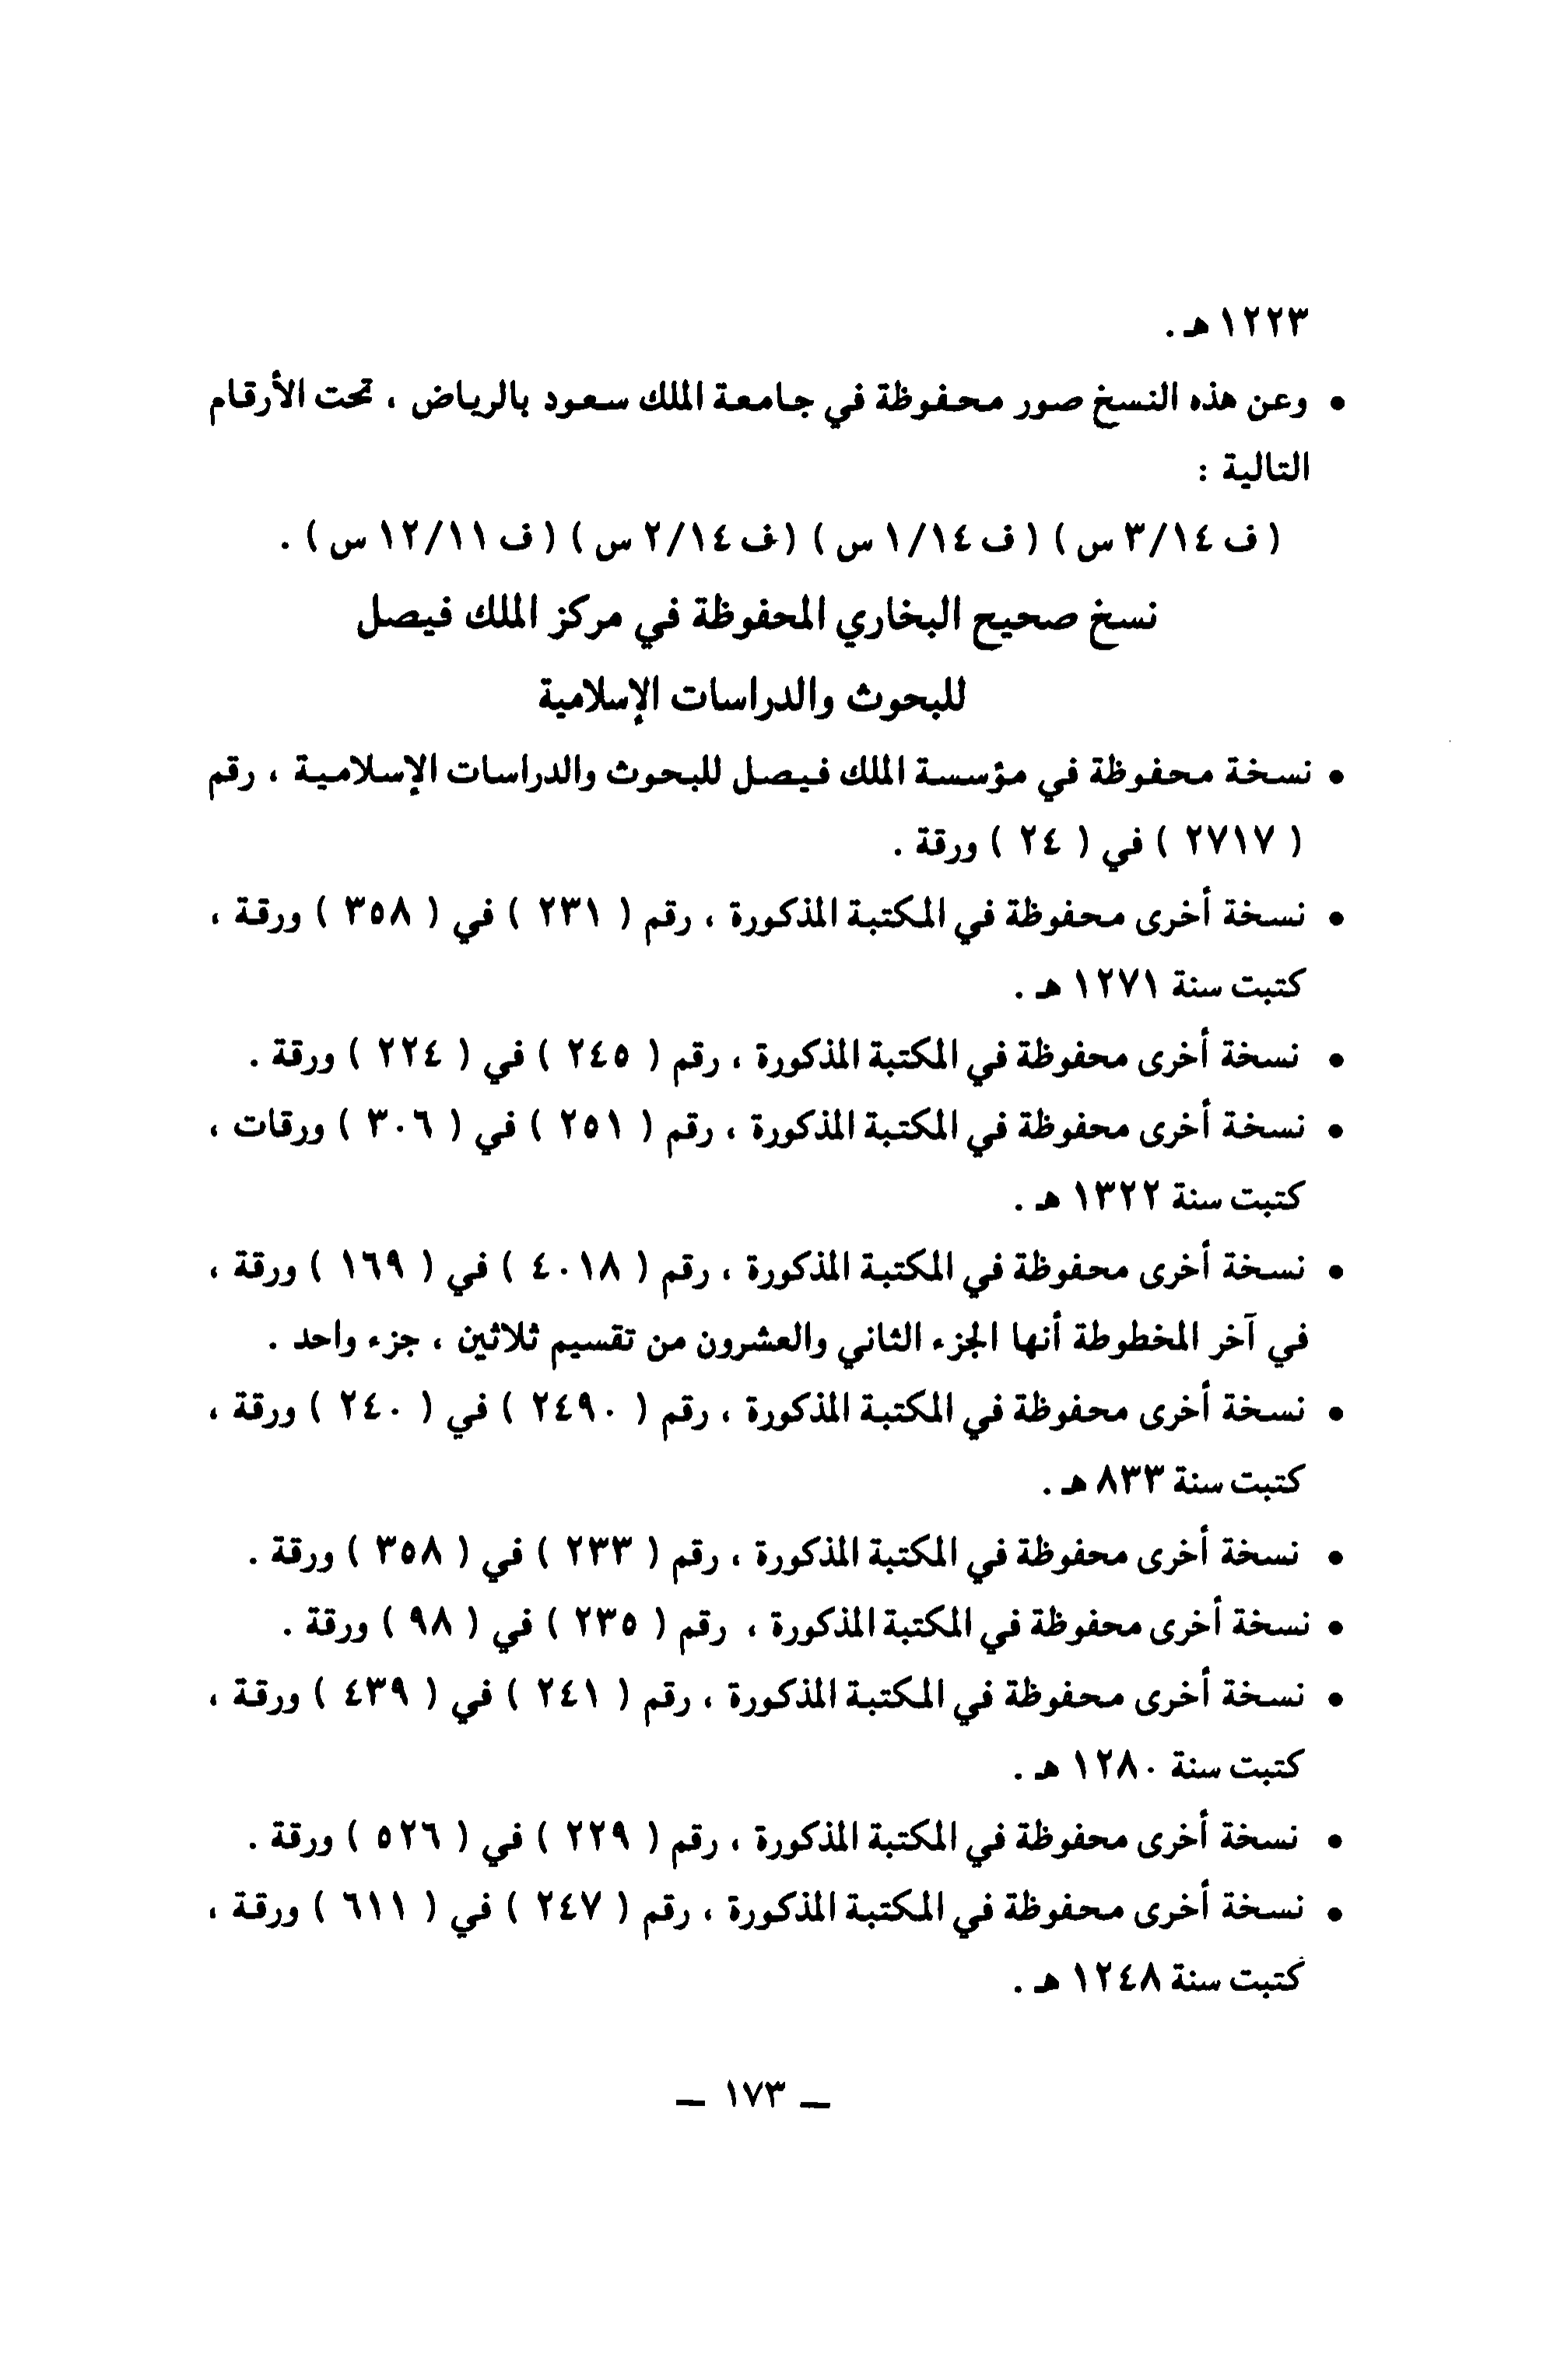 ١٢٢٣ هـ .
• وعن هذه النسخ صور محفوظة في جامعة الملك سعود بالرياض ، تحت الأرقام
التالية :
( ف ٣/١٤ س ) ( ف ١/١٤ س ) ( ف ٢/١٤ س ) ( ف ١٢/١١ س ) .
نسخ صحيح البخاري المحفوظة في مركز الملك فيصل
للبحوث والدراسات الإسلامية
• نسخة محفوظة في مؤسسة الملك فيصل للبحوث والدراسات الإسلامية ، رقم
( ٢٧١٧ ) في ( ٢٤ ) ورقة .
• نسخة أخرى محفوظة في المكتبة المذكورة ، رقم ( ٢٣١ ) في ( ٣٥٨ ) ورقة ،
كتبت سنة ١٢٧١ هـ .
• نسخة أخرى محفوظة في المكتبة المذكورة ، رقم ( ٢٤٥ ) في ( ٢٢٤ ) ورقة .
• نسخة أخرى محفوظة في المكتبة المذكورة ، رقم ( ٢٥١ ) في ( ٣٠٦ ) ورقات ،
كتبت سنة ١٣٢٢ هـ .
• نسخة أخرى محفوظة في المكتبة المذكورة ، رقم ( ٤٠١٨ ) في ( ١٦٩ ) ورقة ،
في آخر المخطوطة أنها الجزء الثاني والعشرون من تقسيم ثلاثين ، جزء واحد .
• نسخة أخرى محفوظة في المكتبة المذكورة ، رقم ( ٢٤٩٠ ) في ( ٢٤٠ ) ورقة ،
كتبت سنة ٨٣٣ هـ .
• نسخة أخرى محفوظة في المكتبة المذكورة ، رقم ( ٢٣٣ ) في ( ٣٥٨ ) ورقة .
• نسخة أخرى محفوظة في المكتبة المذكورة ، رقم ( ٢٣٥ ) في ( ٩٨ ) ورقة .
• نسخة أخرى محفوظة في المكتبة المذكورة ، رقم ( ٢٤١ ) في ( ٤٣٩ ) ورقة ،
كتبت سنة ١٢٨٠ هـ .
• نسخة أخرى محفوظة في المكتبة المذكورة ، رقم ( ٢٢٩ ) في ( ٥٢٦ ) ورقة .
• نسخة أخرى محفوظة في المكتبة المذكورة ، رقم ( ٢٤٧ ) في ( ٦١١ ) ورقة ،
كتبت سنة ١٢٤٨ هـ .
ــ ١٧٣ ــ